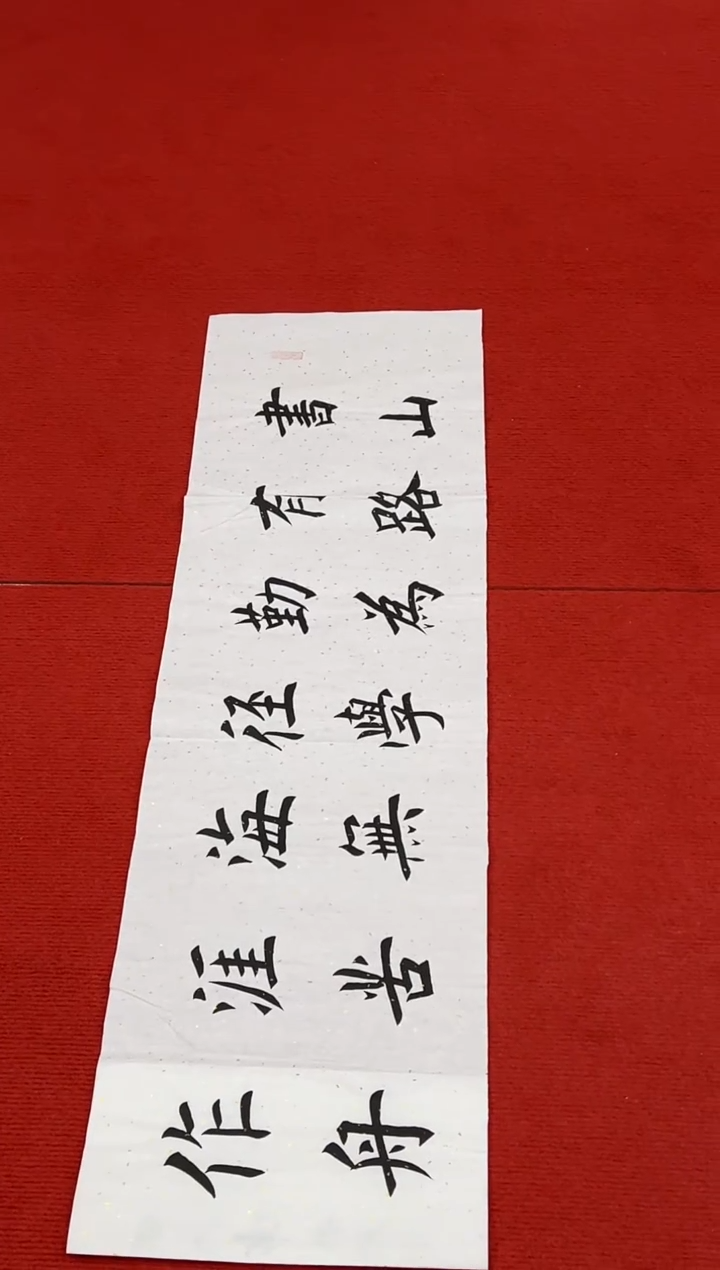 書山
有路
勤為
径學
海無
涯苦
作舟